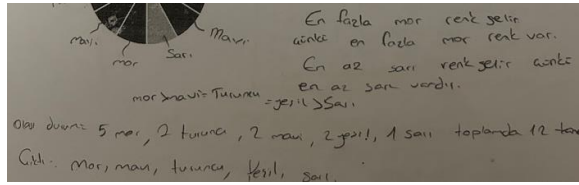 En fazla mor renk gelir
çünkü en fazla mor renk var.
En az sarı renk gelir çünkü
en az sarı vardır.
Mavi
mor
Sarı
Mavi
mor > mavi = Turuncu
= yeşil > Sarı
Olası durum: 5 mor, 2 turuncu, 2 mavi, 2 yeşil, 1 sarı toplamda 12 tane
Çıktı: Mor, mavi, turuncu, Yeşil, sarı